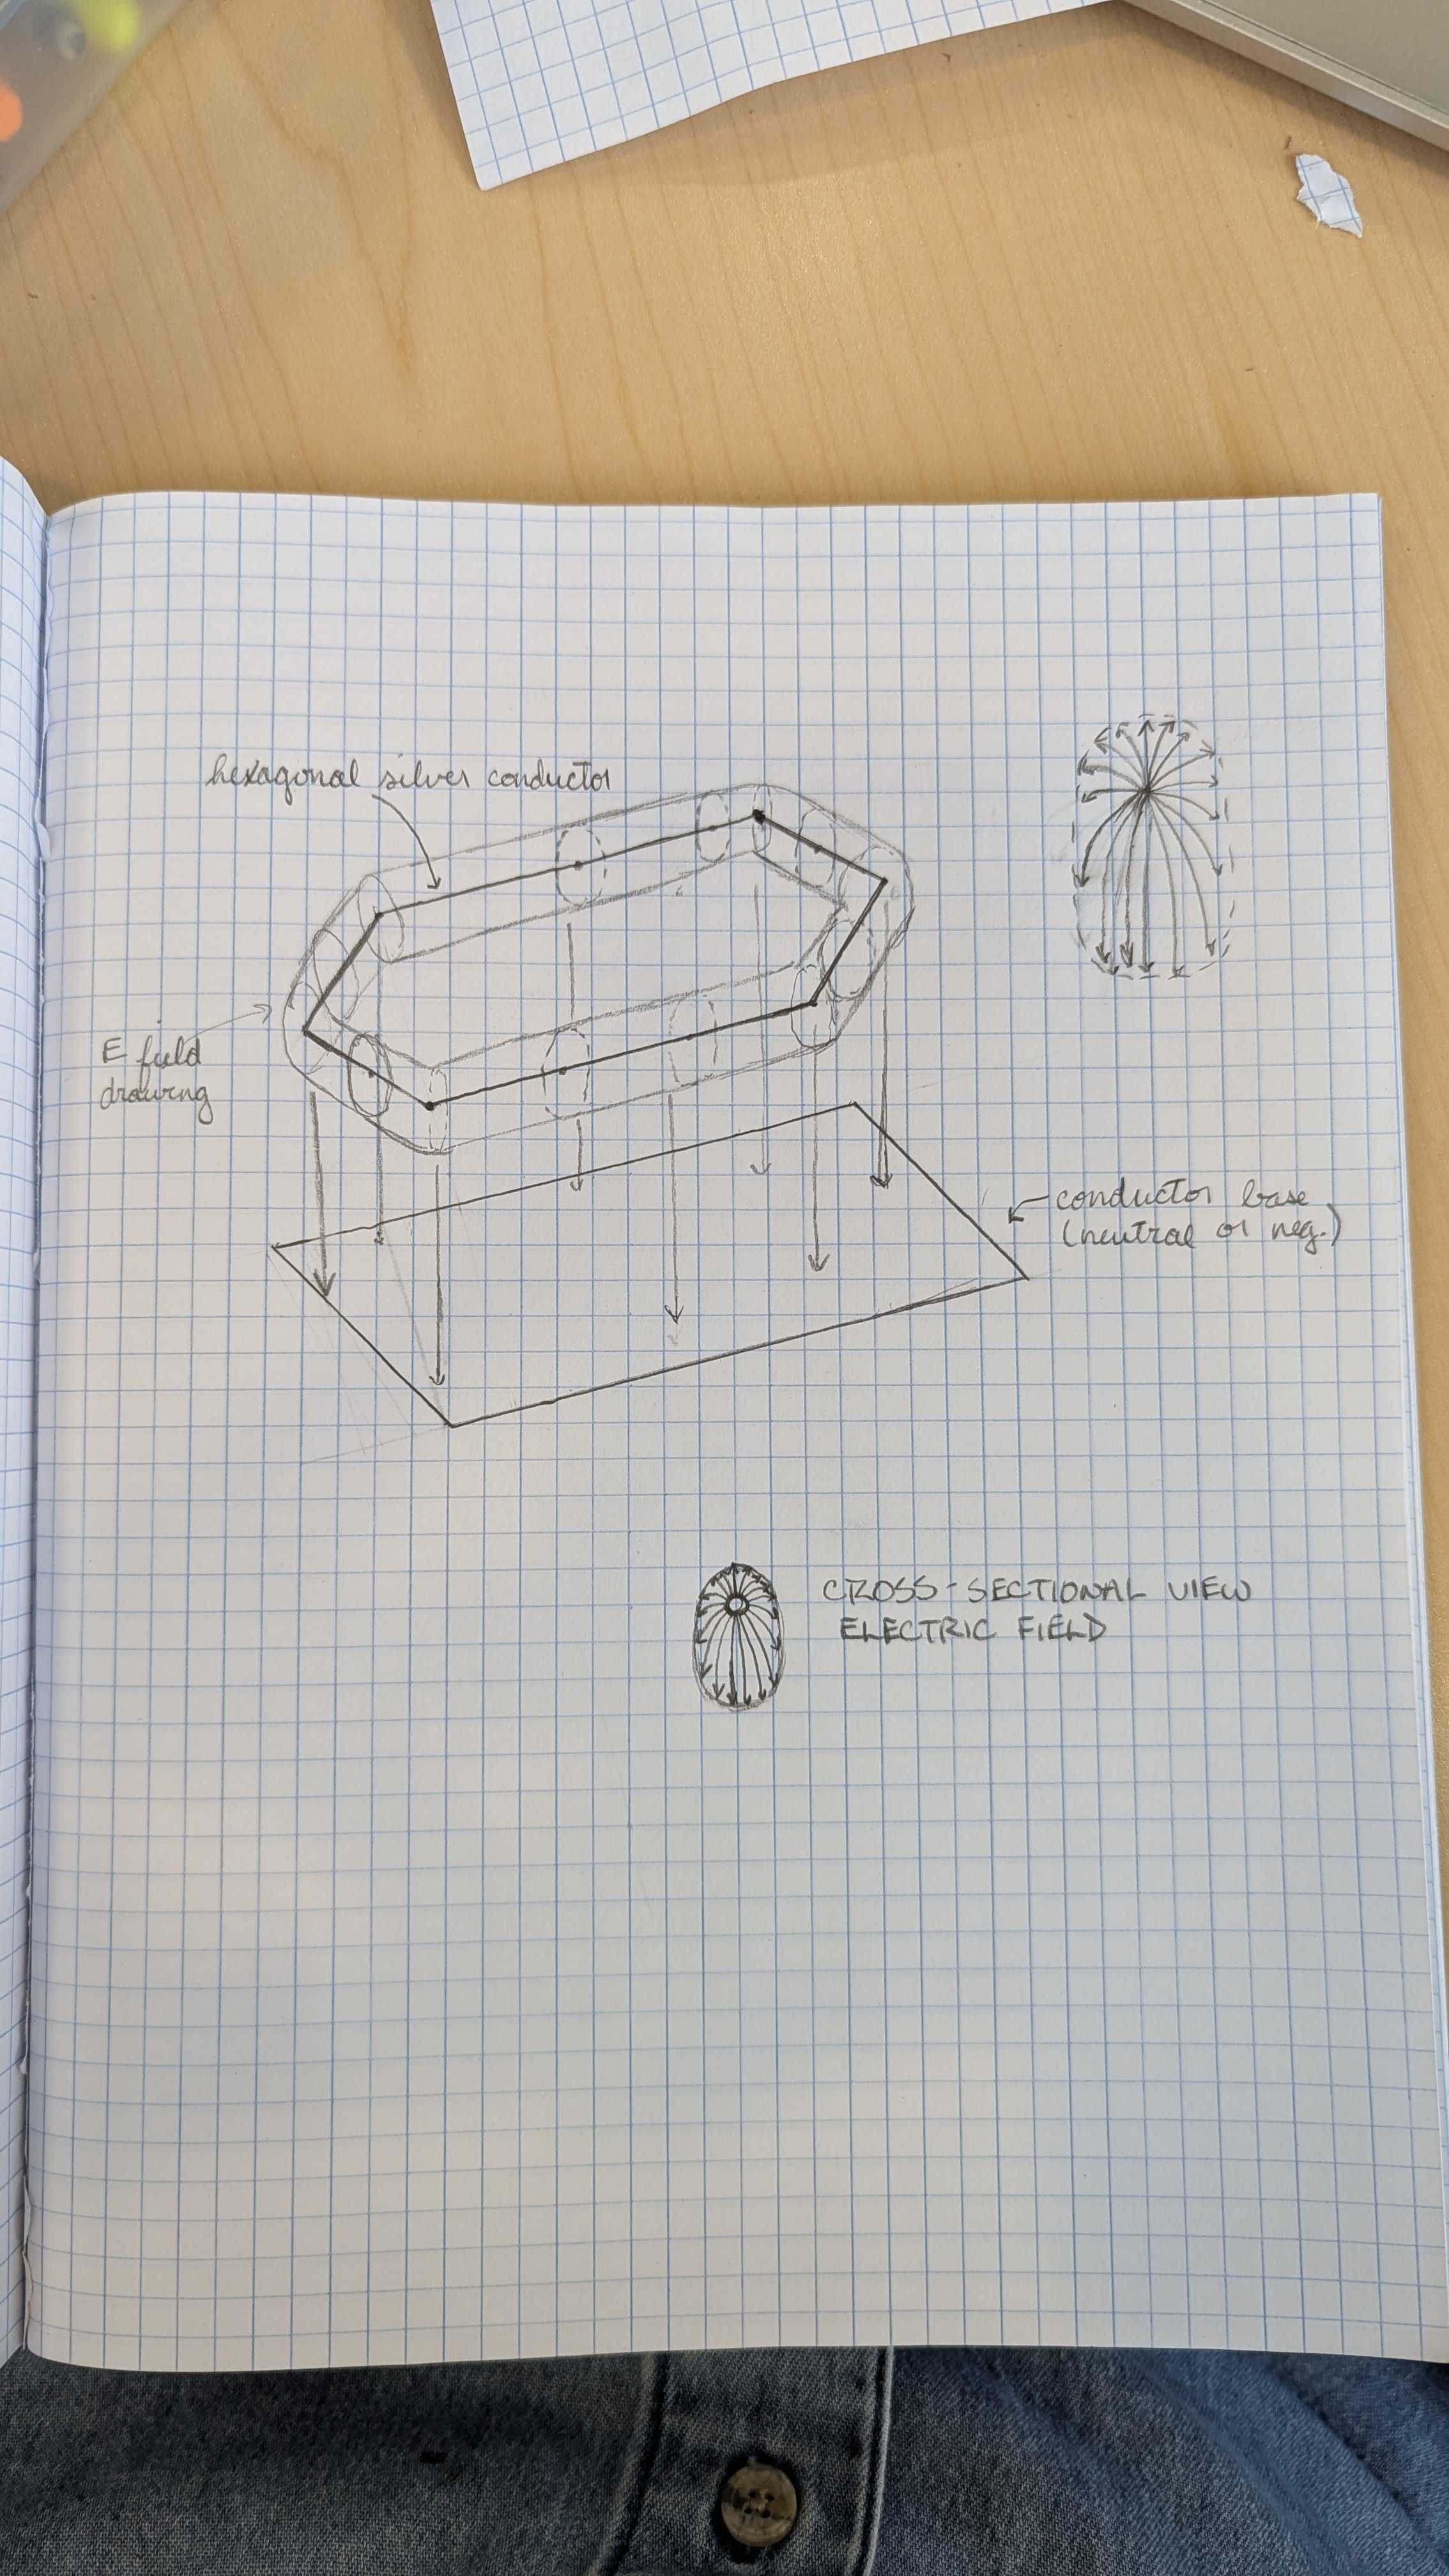 hexagonal silver conductor
E field
drawing
conductor base
(neutral or neg.)
CROSS-SECTIONAL VIEW
ELECTRIC FIELD